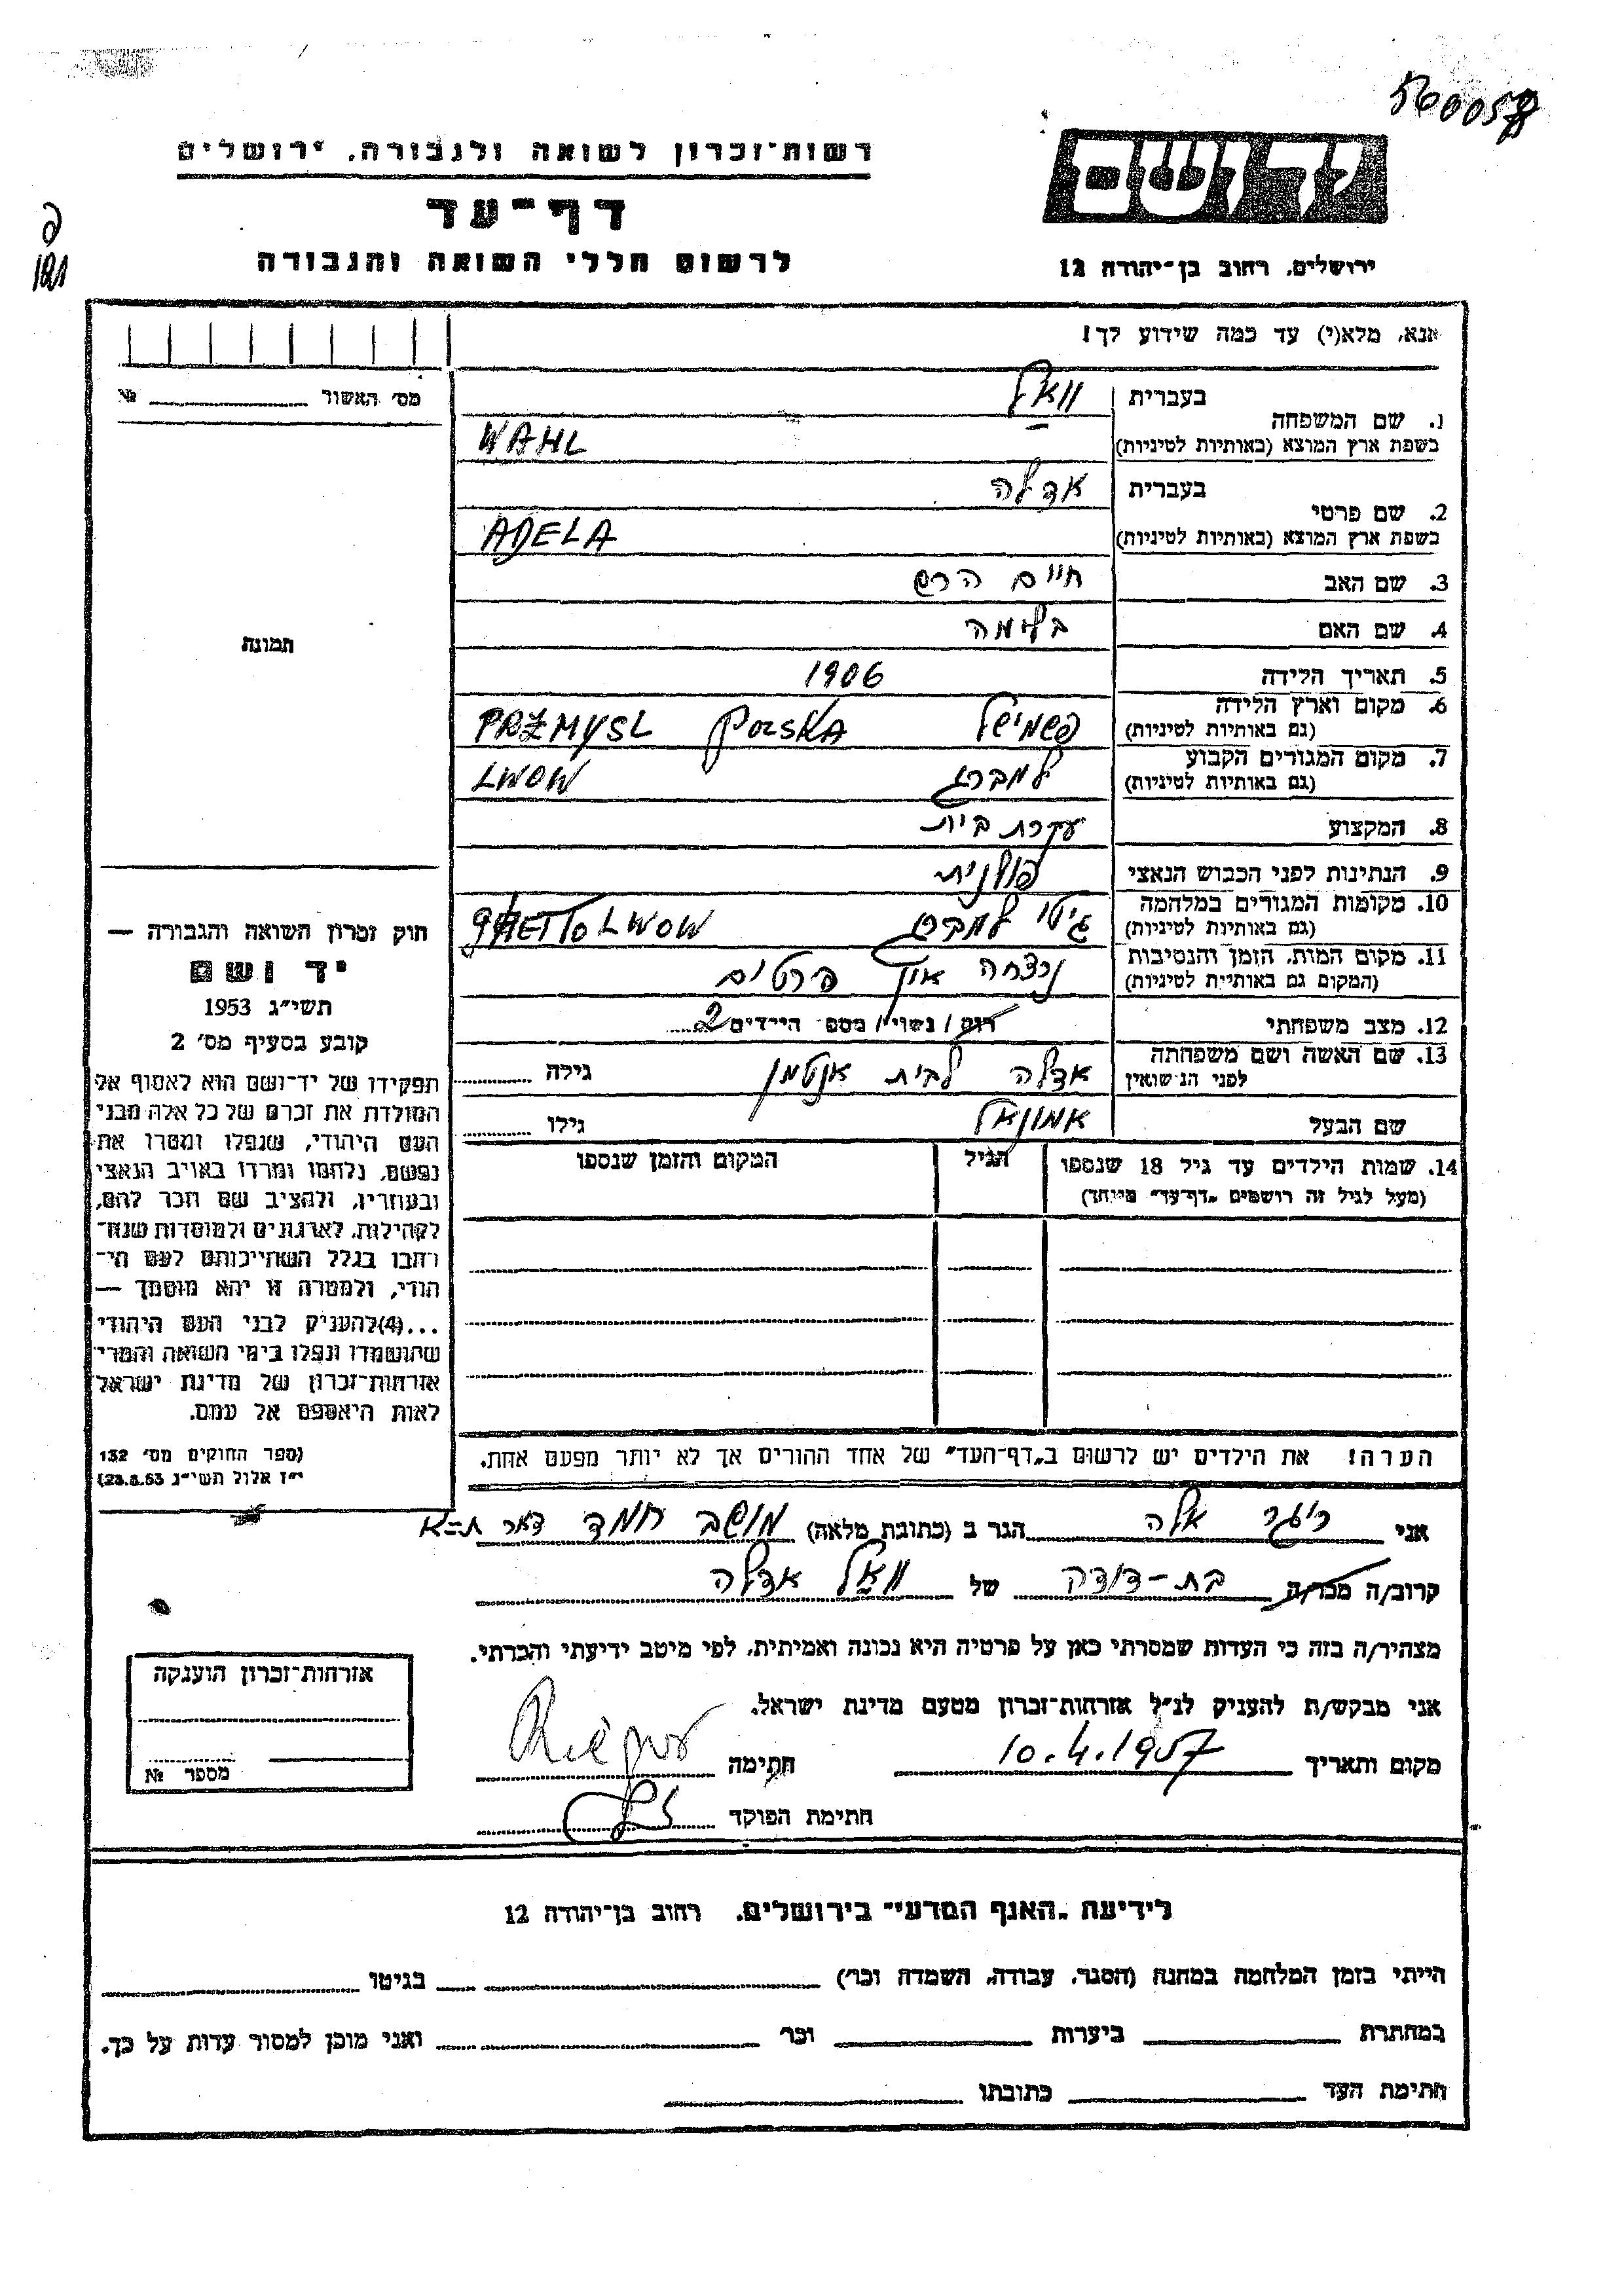 560057
רשות־זכרון לשואה ולגבורה, ירושלים
דף־עד
לרשום חללי השואה והגבורה
יד ושם
ירושלים, רחוב בן־יהודה 12
181
אנא, מלא(י) עד כמה שידוע לך!
מס׳ האשור № 
1. שם המשפחה
בעברית וואל
בשפת ארץ המוצא (באותיות לטיניות) WAHL
2. שם פרטי
בעברית אדלה
בשפת ארץ המוצא (באותיות לטיניות) ADELA
3. שם האב חיים הרש
4. שם האם בלימה
תמונה
5. תאריך הלידה 1906
6. מקום וארץ הלידה פשמישל PRZMYSL POLSKA
(גם באותיות לטיניות)
7. מקום המגורים הקבוע למברג LWOW
(גם באותיות לטיניות)
8. המקצוע עקרת בית
9. הנתינות לפני הכבוש הנאצי פולנית
10. מקומות המגורים במלחמה גיטו למברג GHETTO LWOW
(גם באותיות לטיניות)
11. מקום המות, הזמן והנסיבות נרצחה אין פרטים
(המקום גם באותיות לטיניות)
12. מצב משפחתי רווק / נשוי / מספר הילדים 2
13. שם האשה ושם משפחתה אדלה לבית גילה
לפני הנישואין
שם הבעל גילו
14. שמות הילדים עד גיל 18 שנספו הגיל המקום והזמן שנספו
(מעל לגיל זה רושמים „דף־עד” מיוחד)
הערה! את הילדים יש לרשום ב„דף־העד” של אחד ההורים אך לא יותר מפעם אחת.
חוק זכרון השואה והגבורה —
יד ושם
תשי״ג 1953
קובע בסעיף מס׳ 2
תפקידו של יד־ושם הוא לאסוף אל
המולדת את זכרם של כל אלה מבני
העם היהודי, שנפלו ומסרו את
נפשם, נלחמו ומרדו באויב הנאצי
ובעוזריו, ולהציב שם וזכר להם,
לקהילות, לארגונים ולמוסדות שנח־
רבו בגלל השתייכותם לעם הי־
הודי, ולמטרה זו יהא מוסמך —
...(4) להעניק לבני העם היהודי
שהושמדו ונפלו בימי השואה והמרי
אזרחות־זכרון של מדינת ישראל
לאות היאספם אל עמם.
(ספר החוקים מס׳ 132
י״ז אלול תשי״ג 28.8.53)
אני אלה הגר ב (כתובת מלאה) מושב חמד
קרוב/ה מכר/ה בת-דודה של וואל אדלה
מצהיר/ה בזה כי העדות שמסרתי כאן על פרטיה היא נכונה ואמיתית, לפי מיטב ידיעתי והכרתי.
אני מבקש/ת להעניק לנ״ל אזרחות־זכרון מטעם מדינת ישראל.
מקום ותאריך 10.4.1957 חתימה
חתימת הפוקד
אזרחות־זכרון הוענקה
מספר №
לידיעת „האגף המדעי” בירושלים, רחוב בן־יהודה 12
הייתי בזמן המלחמה במחנה (הסגר, עבודה, השמדה וכו׳) בגיטו
במחתרת ביערות וכו׳ ואני מוכן למסור עדות על כך.
חתימת העד כתובתו